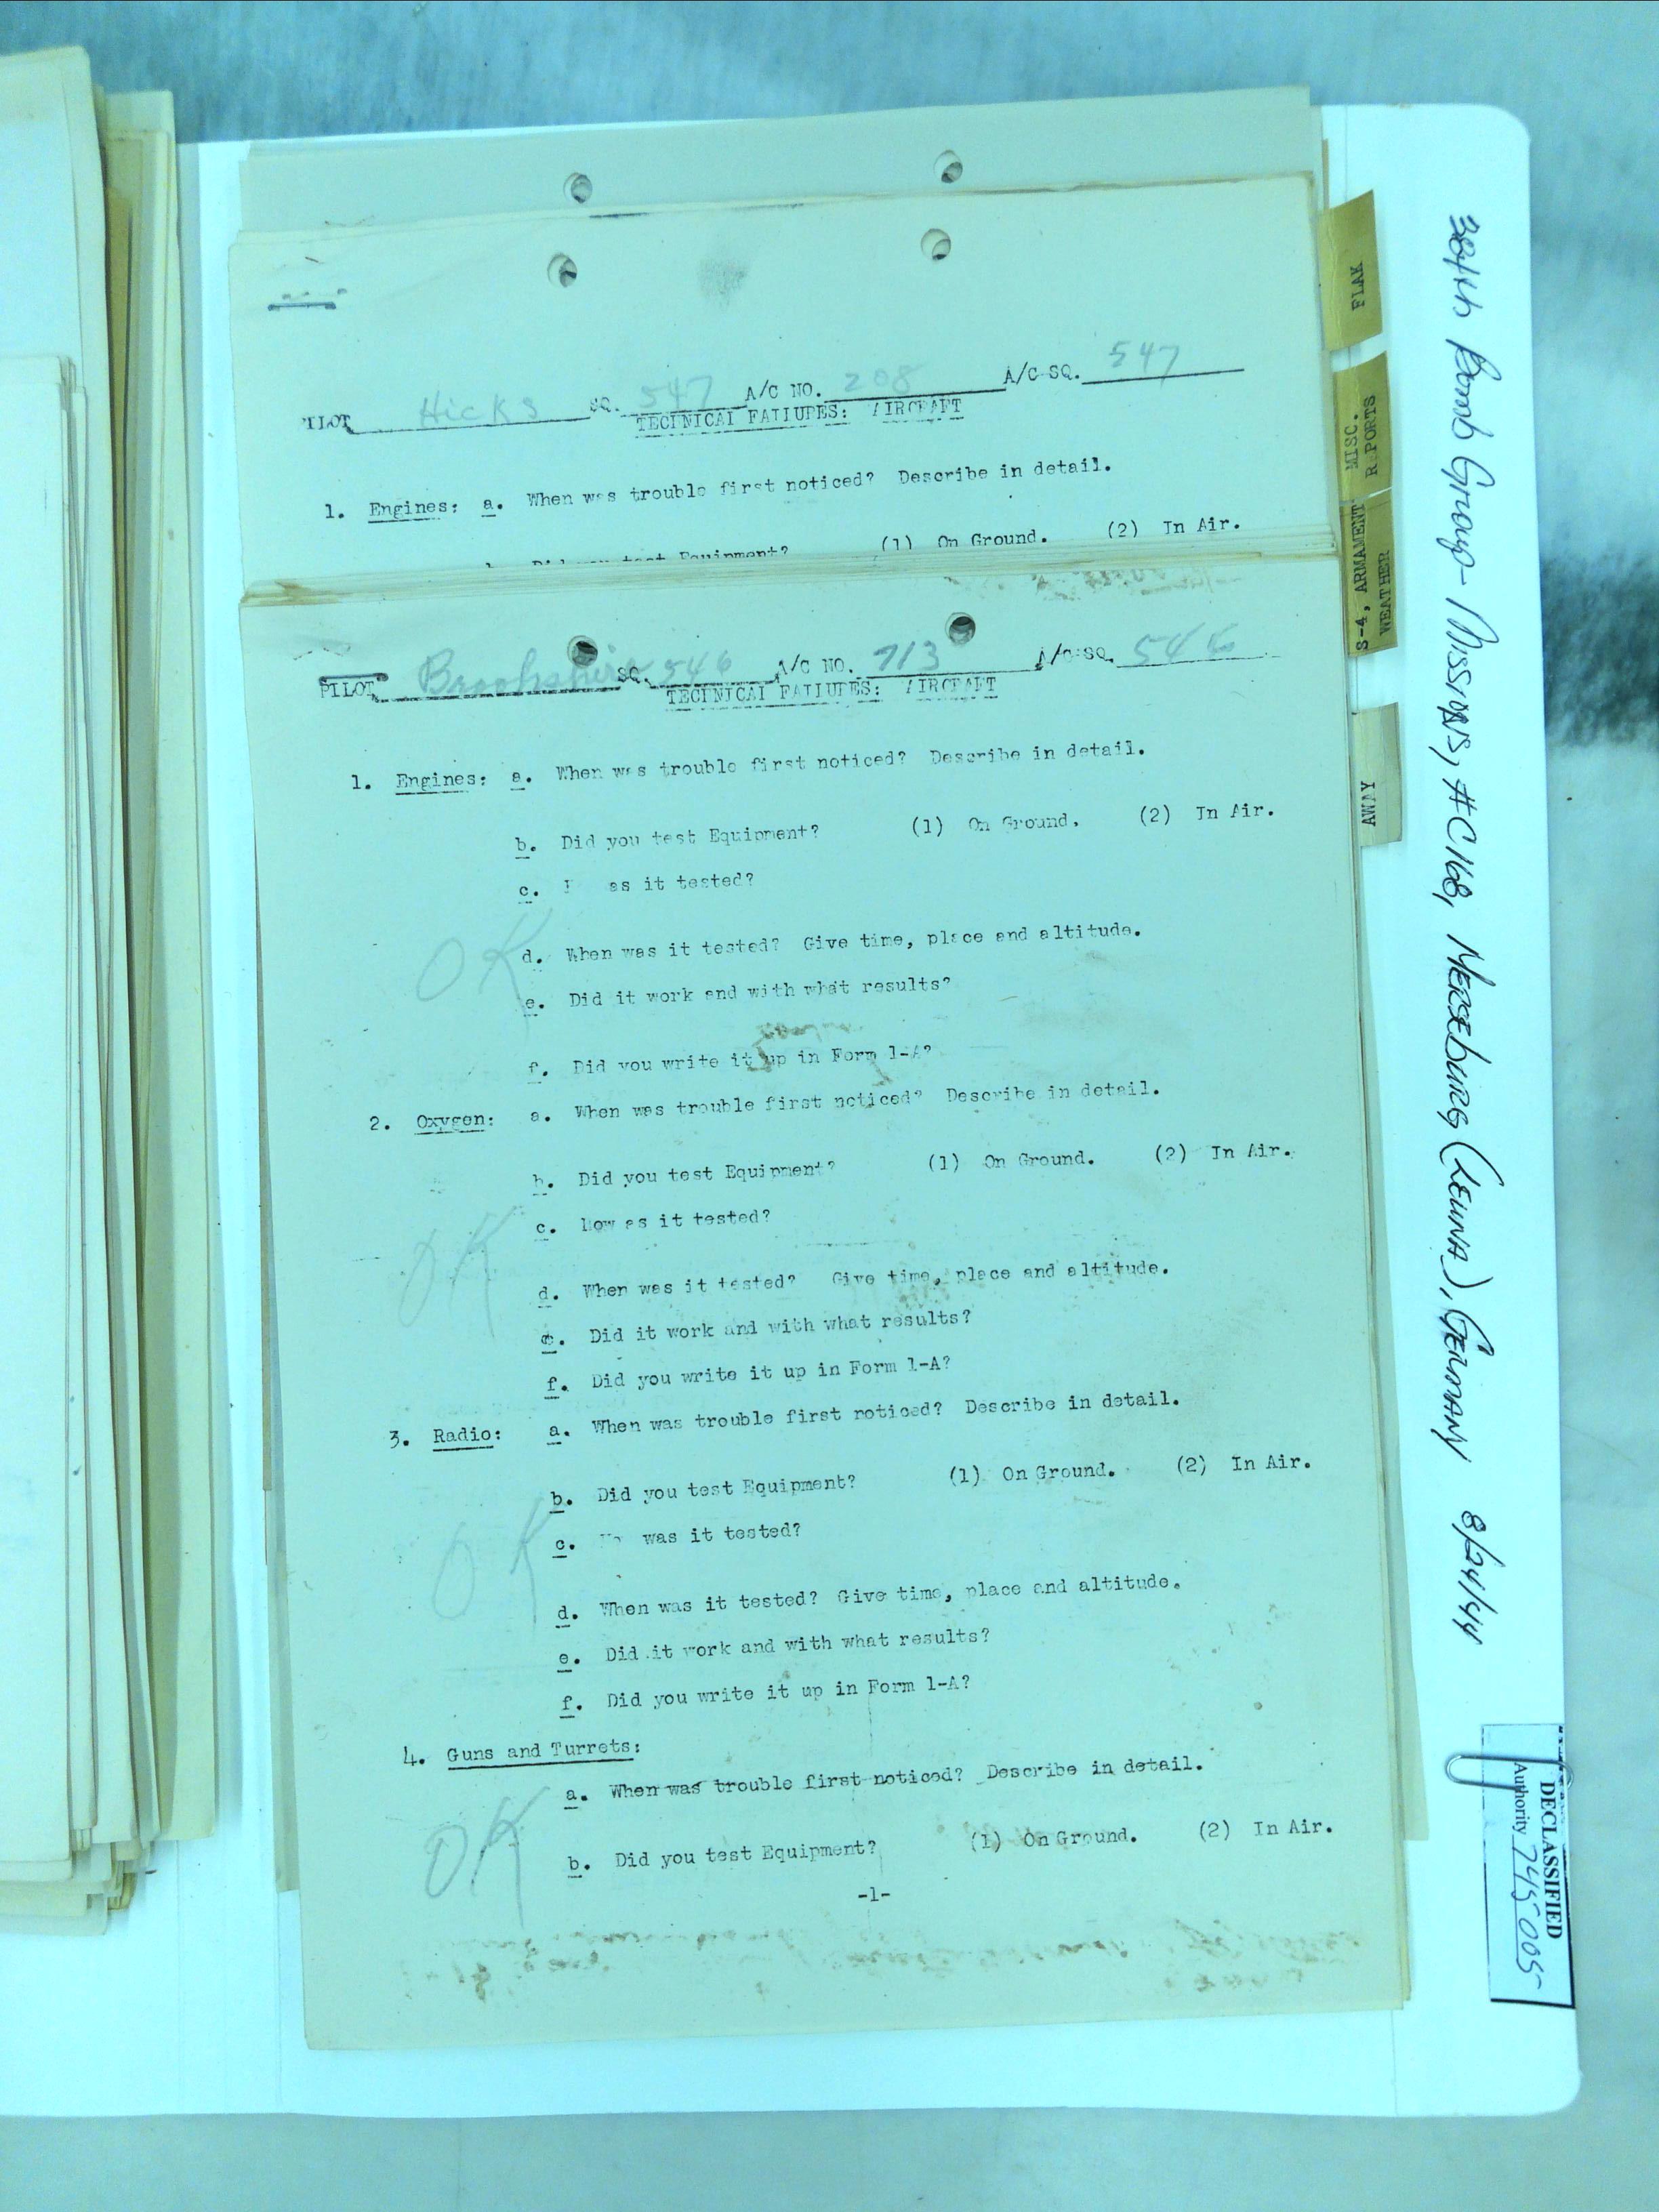 PILOT Hicks SQ. 547 A/C NO. 208 A/C SQ. 547
TECHNICAL FAILURES: AIRCRAFT
1. Engines: a. When was trouble first noticed? Describe in detail.
b. Did you test Equipment? (1) On Ground. (2) In Air.
PILOT Brookshire SQ. 546 A/C NO. 713 A/C SQ. 546
TECHNICAL FAILURES: AIRCRAFT
1. Engines: a. When was trouble first noticed? Describe in detail.
b. Did you test Equipment? (1) On Ground. (2) In Air.
c. as it tested?
OK
d. When was it tested? Give time, place and altitude.
e. Did it work and with what results?
f. Did you write it up in Form 1-A?
2. Oxygen: a. When was trouble first noticed? Describe in detail.
b. Did you test Equipment? (1) On Ground. (2) In Air.
c. How as it tested?
OK
d. When was it tested? Give time, place and altitude.
e. Did it work and with what results?
f. Did you write it up in Form 1-A?
3. Radio: a. When was trouble first noticed? Describe in detail.
b. Did you test Equipment? (1) On Ground. (2) In Air.
OK
c. was it tested?
d. When was it tested? Give time, place and altitude.
e. Did it work and with what results?
f. Did you write it up in Form 1-A?
4. Guns and Turrets:
a. When was trouble first noticed? Describe in detail.
OK
b. Did you test Equipment? (1) On Ground. (2) In Air.
-1-
FLAK
MISC.
REPORTS
S-4, ARMAMENT
WEATHER
AWAY
384th Bomb Group - Missions, #C168, Merseburg (Leuna), Germany 8/24/44
DECLASSIFIED
Authority 745005